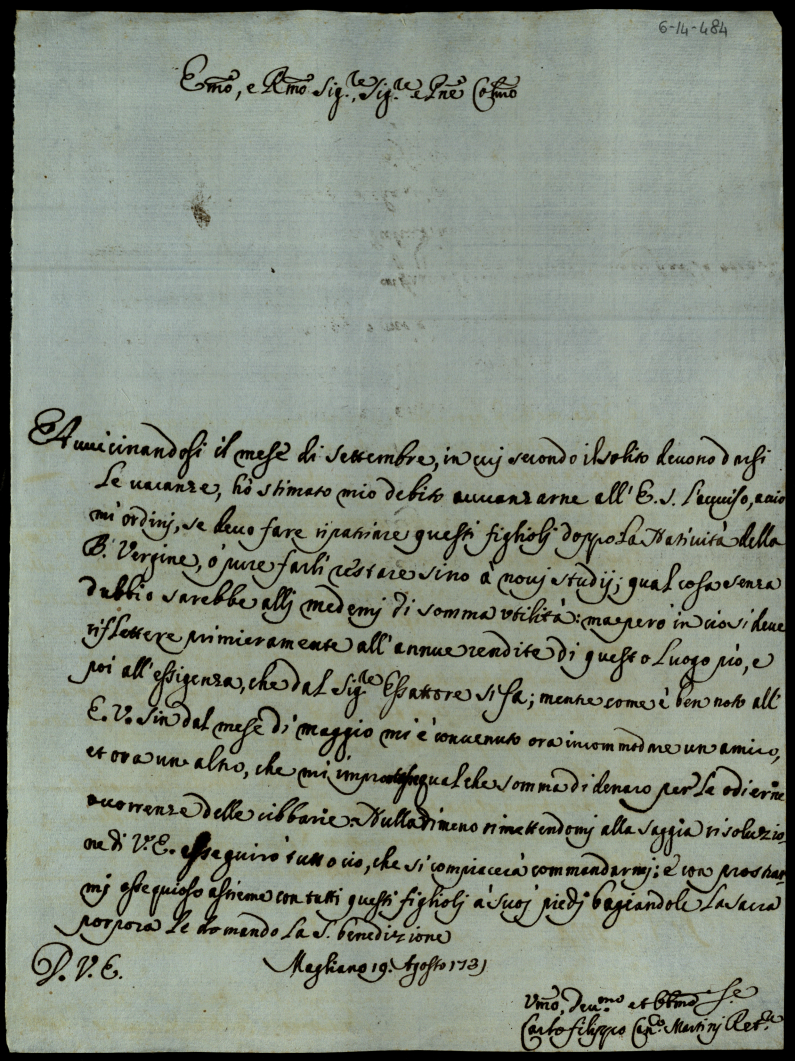 6-14-484
Emo, e Rmo Sig.re, Sig.re e Pne Colmo
Avvicinandosi il mese di Settembre, in cuj secondo il solito devono darsi
le vacanze, hò stimato mio debito avvanzarne all'E.S. l'avviso, acciò
mi ordinj, se devo fare ripatriare questi figliolj doppo la Natività della
B. Vergine, ò pure farli restare sino à novj studij; qual cosa senza
dubbio sarebbe allj medemj di somma utilità: ma però in ciò si deve
riflettere primieramente all'annue rendite di questo Luogo pio, e
poi all'essigenza, che dal Sig.re Essattore si fà; mentre come è ben noto all'
E.V. sin dal mese di Maggio mi è convenuto ora incommodare un amico,
et ora un altro, che mi qualche somma di denaro per le odierne
occorrenze delle cibbarie. Nulladimeno rimettendomj alla saggia risoluzio
ne di V.E. esseguirò tutto ciò, che si compiacerà commandarmj; e con prostrar
mi ossequioso assieme con tutti questi figliolj à suoj piedj bagiandole la sacra
porpora le domando la S. benedizione
D.V.E. Magliano 19. Agosto 1731
Vmo, Dev.mo et Obbmo Se.
Carlo Filippo Can.co Martinj Ret.re